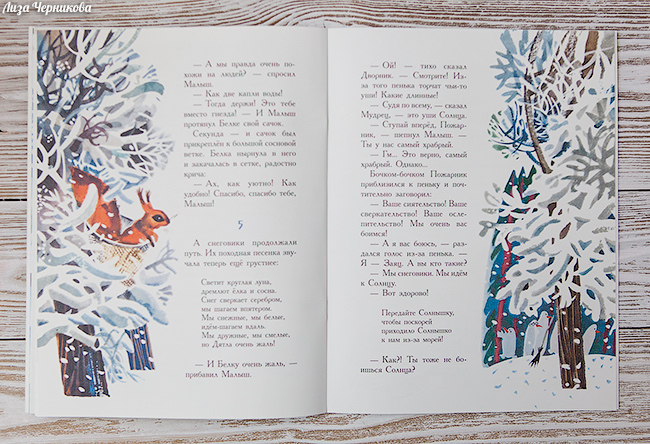 Лиза Черникова
— А мы правда очень по-
хожи на людей? — спросил
Малыш.
— Как две капли воды!
— Тогда держи! Это тебе
вместо гнезда! — И Малыш
протянул Белке свой сачок.
Секунда — и сачок был
прикреплён к большой сосновой
ветке. Белка нырнула в него
и закачалась в сетке, радостно
крича:
— Ах, как уютно! Как
удобно! Спасибо, спасибо тебе,
Малыш!
5
А снеговики продолжали
путь. Их походная песенка зву-
чала теперь ещё грустнее:
Светит круглая луна,
дремлют ёлка и сосна.
Снег сверкает серебром,
мы шагаем впятером.
Мы снежные, мы белые,
идём-шагаем вдаль.
Мы дружные, мы смелые,
но Дятла очень жаль!
— И Белку очень жаль, —
прибавил Малыш.
— Ой! — тихо сказал
Дворник. — Смотрите! Из-
за того пенька торчат чьи-то
уши! Какие длинные!
— Судя по всему, — сказал
Мудрец, — это уши Солнца.
— Ступай вперёд, Пожар-
ник, — шепнул Малыш. —
Ты у нас самый храбрый.
— Гм... Это верно, самый
храбрый. Однако...
Бочком-бочком Пожарник
приблизился к пеньку и поч-
тительно заговорил:
— Ваше сиятельство! Ваше
сверкательство! Ваше осле-
пительство! Мы очень вас
боимся!
— А я вас боюсь, — раз-
дался голос из-за пенька. —
Я — Заяц. А вы кто такие?
— Мы снеговики. Мы идём
к Солнцу.
— Вот здорово!
Передайте Солнышку,
чтобы поскорей
приходило Солнышко
к нам из-за морей!
— Как?! Ты тоже не бо-
ишься Солнца?